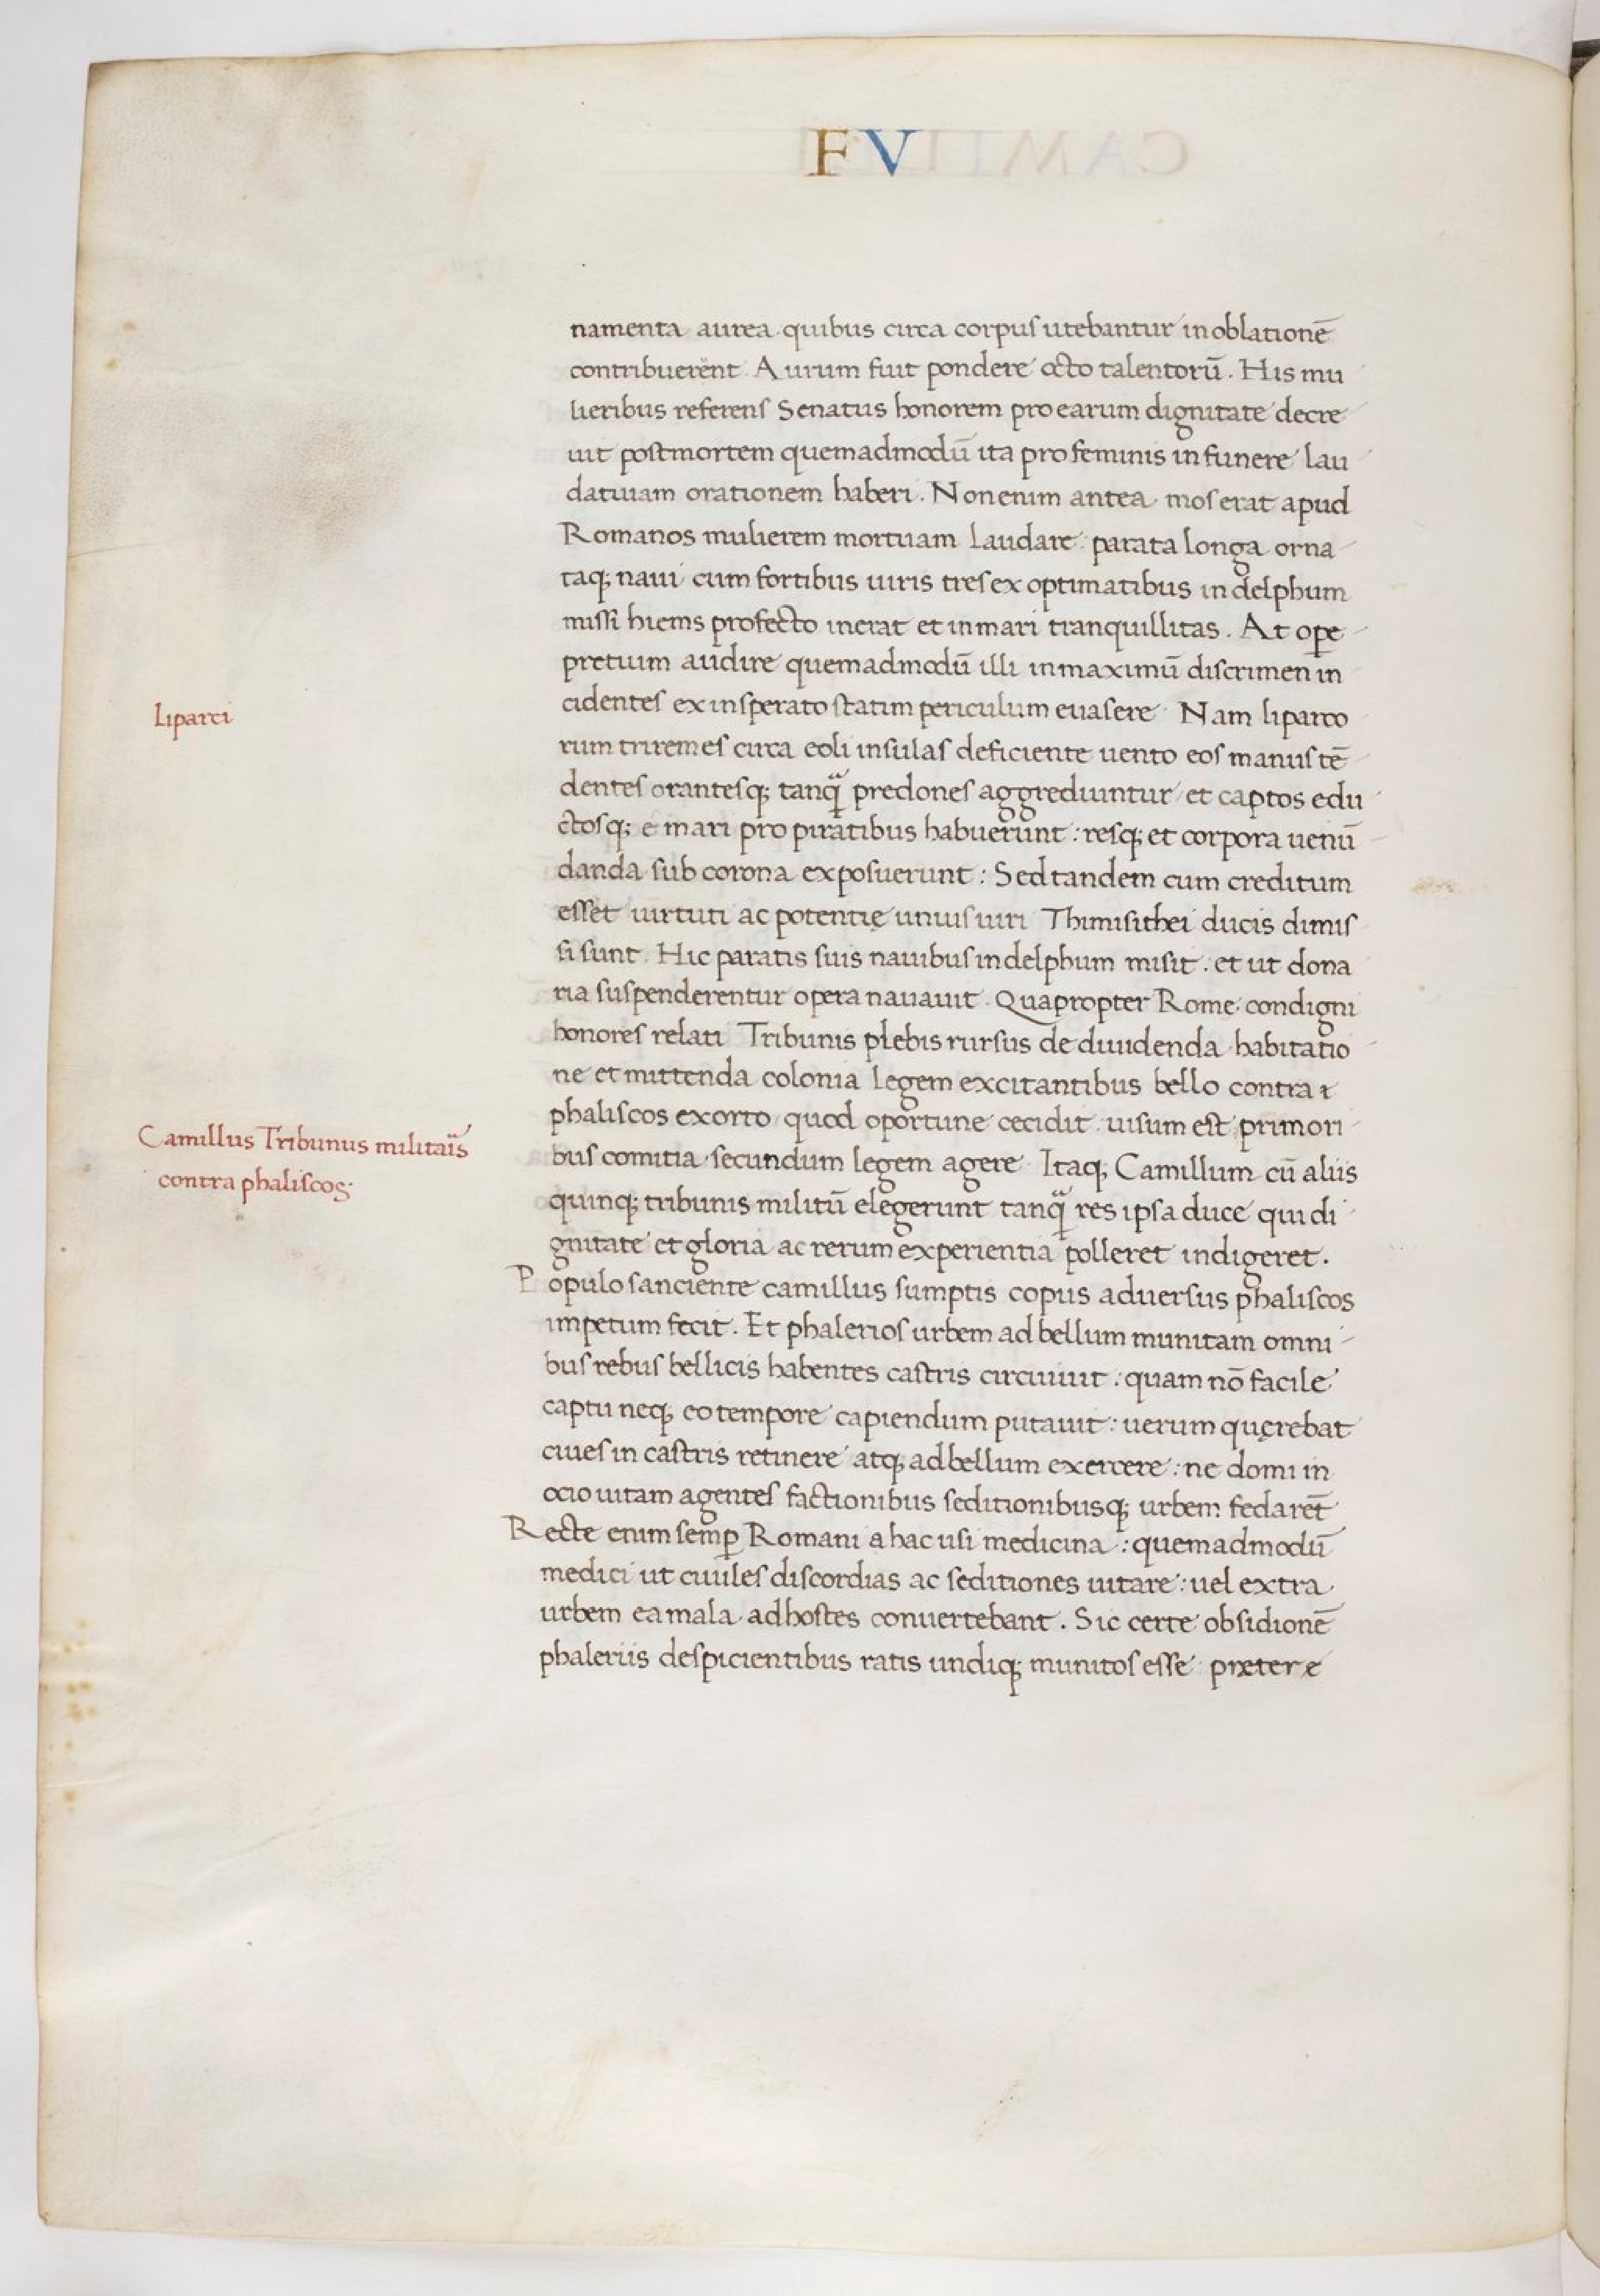 FV
namenta aurea quibus circa corpus utebantur in oblationē
contribuerent. Aurum fuit pondere octo talentorū. His mu
lieribus referens Senatus honorem pro earum dignitate decre
uit post mortem quemadmodū ita pro feminis in funere lau
datiuam orationem haberi. Non enim antea mos erat apud
Romanos mulierem mortuam laudare: parata longa orna
taq; naui cum fortibus uiris tres ex optimatibus in delphum
missi hiems profecto inerat et in mari tranquillitas. At ope
pretium audire quemadmodū illi in maximū discrimen in
cidentes ex insperato statim periculum euasere. Nam liparco
Liparei
rum triremes circa eoli insulas deficiente uento eos manus tē
dentes orantesq; tanq̃ predones aggrediuntur et captos edu
ctosq; e mari pro piratibus habuerunt: resq; et corpora uenū
danda sub corona exposuerunt: Sed tandem cum creditum
esset uirtuti ac potentię unius uiri Thimisithei ducis dimis
si sunt. Hic paratis suis nauibus in delphum misit: et ut dona
ria suspenderentur opera nauauit. Quapropter Rome condigni
honores relati Tribunis plebis rursus de diuidenda habitatio
ne et mittenda colonia legem excitantibus bello contra
phaliscos exorto quod oportune cecidit uisum est primori
Camillus Tribunus militaris
contra phaliscos.
bus comitia secundum legem agere. Itaq; Camillum cū aliis
quinq; tribunis militū elegerunt tanq̃ res ipsa duce qui di
gnitate et gloria ac rerum experientia polleret indigeret.
Populo sanciente camillus sumptis copiis aduersus phaliscos
impetum fecit. Et phalerios urbem ad bellum munitam omni
bus rebus bellicis habentes castris circuiuit: quam nō facile
captu neq; eo tempore capiendum putauit: uerum quęrebat
ciues in castris retinere atq; ad bellum exercere: ne domi in
ocio uitam agentes factionibus seditionibusq; urbem fedarēt
Recte enim semꝑ Romani a hac usi medicina: quemadmodū
medici ut ciuiles discordias ac seditiones uitare: uel extra
urbem ea mala ad hostes conuertebant. Sic certe obsidionē
phaleriis despicientibus ratis undiq; munitos esse pretere